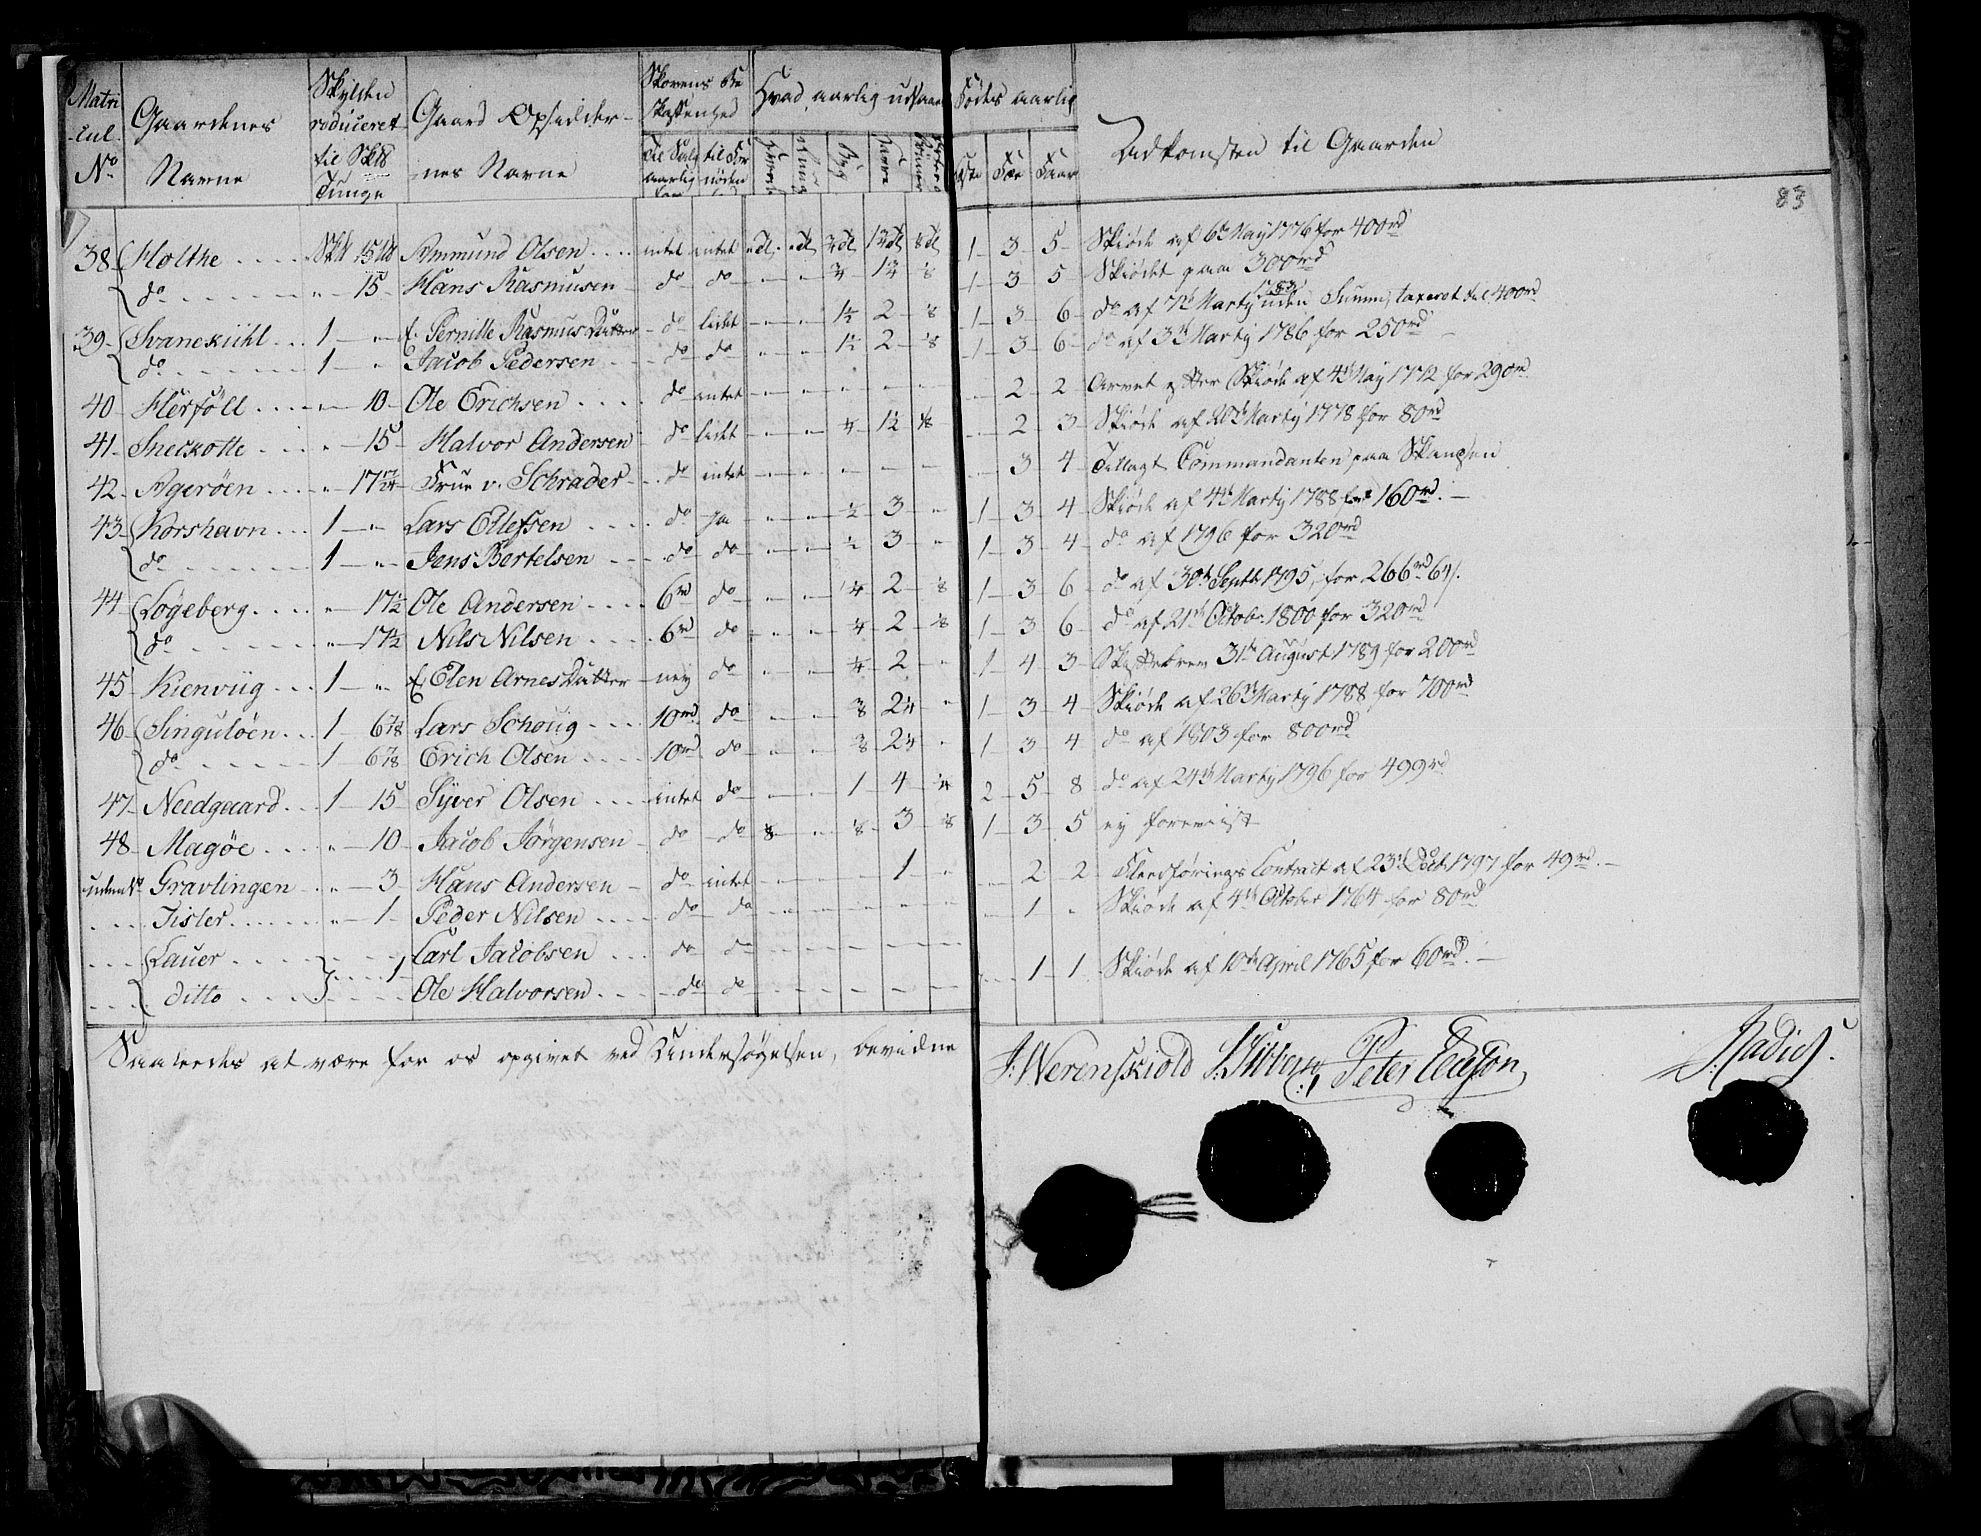 Matri-cul. No | Gaardenes Navne | Skylden reduceret til Skpd Tunge | Gaard Opsidder-nes Navne | Skovens Beskaffenhed: Til Salg aarlig for, til Fornøden | Hvad aarlig udsaaes: Hvede, Rug, Byg, Havre, Erter | Födes aarlig: Heste, Fæe, Faar | Adkomsten til Gaarden
83
38 Holthe Skpd 15 Lpd Ammund Olsen intet intet 1 3 5 Skiøde af 6te May 1776 for 400rd
do „ 15 Hans Rasmusen do do „ „ 3/4 1 3/4 1/8 1 3 5 Skiødet paa 300rd
39 Svanekiihl 1 „ E. Pernille RasmusDatter do lidt „ „ 1 1/2 2 1/8 1 3 6 do af 7de Marty 1783 uden Summ, taxeret til 400rd
do 1 „ Jacob Pedersen do do „ „ 1 1/2 2 1/8 1 3 6 do af 3de Marty 1786 for 250rd
40 Herföll „ 10 Ole Erichsen do intet „ „ „ „ „ 2 2 Arvet efter Skiöde af 4de May 1772 for 290rd
41 Sneckotte „ 15 Halvor Andersen do lidt „ „ 1/4 1 1/2 1/8 2 3 Skiøde af 20de Marty 1778 for 80rd
42 Agerøen „ 17 Frue v. Schrader do intet „ „ „ „ „ 3 4 Tillagt Commandanten paa Skandsen
43 Korshavn 1 „ Lars Ellefsen do ja „ „ 1/2 3 „ 1 3 4 Skiøde af 4de Marty 1788 for 160rd
do 1 „ Jens Bertelsen do do „ „ 1/2 3 „ 1 3 4 do af 1796 for 320rd
44 Løgeberg „ 17 1/2 Ole Andersen 6rd do „ „ 1/4 2 1/8 1 3 6 do af 30de Septb 1795, for 266rd 64s.
do „ 17 1/2 Nils Nilsen 6rd do „ „ 1/4 2 1/8 1 3 6 do af 21de Octobr 1800 for 320rd
45 Kienviig 1 „ E. Elen ArnesDatter ney do „ „ 1/4 2 „ 1 4 3 Skiftebrev 31de August 1789 for 200rd
46 Singuløen 1 6 7/8 Lars Schoug 10rd do „ „ 3/8 2 1/4 „ 1 3 4 Skiøde af 26de Marty 1788 for 700rd
do 1 6 7/8 Erich Olsen 10rd do „ „ 3/8 2 1/4 „ 1 3 4 do af 1803 for 800rd
47 Needgaard 1 15 Syver Olsen intet do „ „ 1 4 1/4 2 5 8 do af 24de Marty 1796 for 499rd
48 Magøe „ 10 Jacob Jørgensen do do 1/8 „ 1/8 3 1/8 1 3 5 ey foreviist
uden No Gravlingen „ 3 Hans Andersen do intet „ „ 1 „ 2 2 Contract af 23de Decb. 1797 for 49rd.
Tisler „ 1 Peder Nilsen do do „ „ „ „ „ 1 „ Skiøde af 4de October 1764 for 80rd
Lauer Carl Jacobsen do do
ditto 1 Ole Halvorsen do do 1 1 Skiøde af 10de April 1765 for 60rd.
Saaledes at være for os opgivet ved Undersøgelsen, bevidne
J. Werenskiold Peter Ellefson